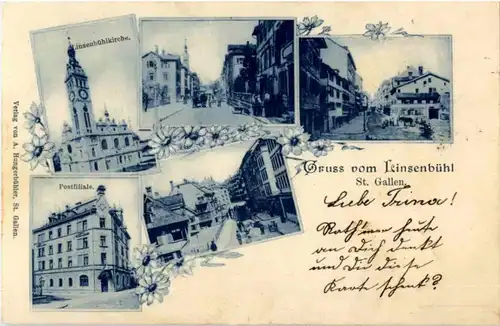 Linsenbühlkirche.
Postfiliale.
Verlag von A. Hungerbühler, St. Gallen.
Gruss vom Linsenbühl
St. Gallen.
Liebe Trina!
Rath' wer heute
an Dich denkt
und Dir diese
Karte schenkt?